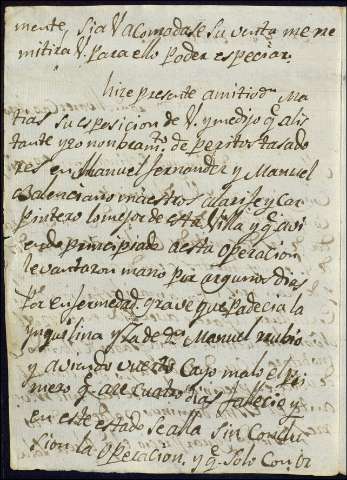 mente, si a V acomodase su venta me re
mitira V. para ello poder especiar.
hize presente a mi tio Dn. Ma
tias su esposicion de V. y me dijo q.e al is
tante yzo nonbramto. de peritos tasado
res en Manuel fernandez y Manuel
Balenciano maestros alarife y Car
pintero lo mejor de esta Villa y q.e avi
endo principiado a esta Operacion
levantaron mano por argunos dias
por enfermedad grave que padecia la
ynquilina y la de Dn. Manuel rubio
y aviendo vuerto Cayo malo el pri
mero q.e ace cuatro dias fallecio y
en este estado se alla sin Conclu
sion la Operacion. y q.e solo Con